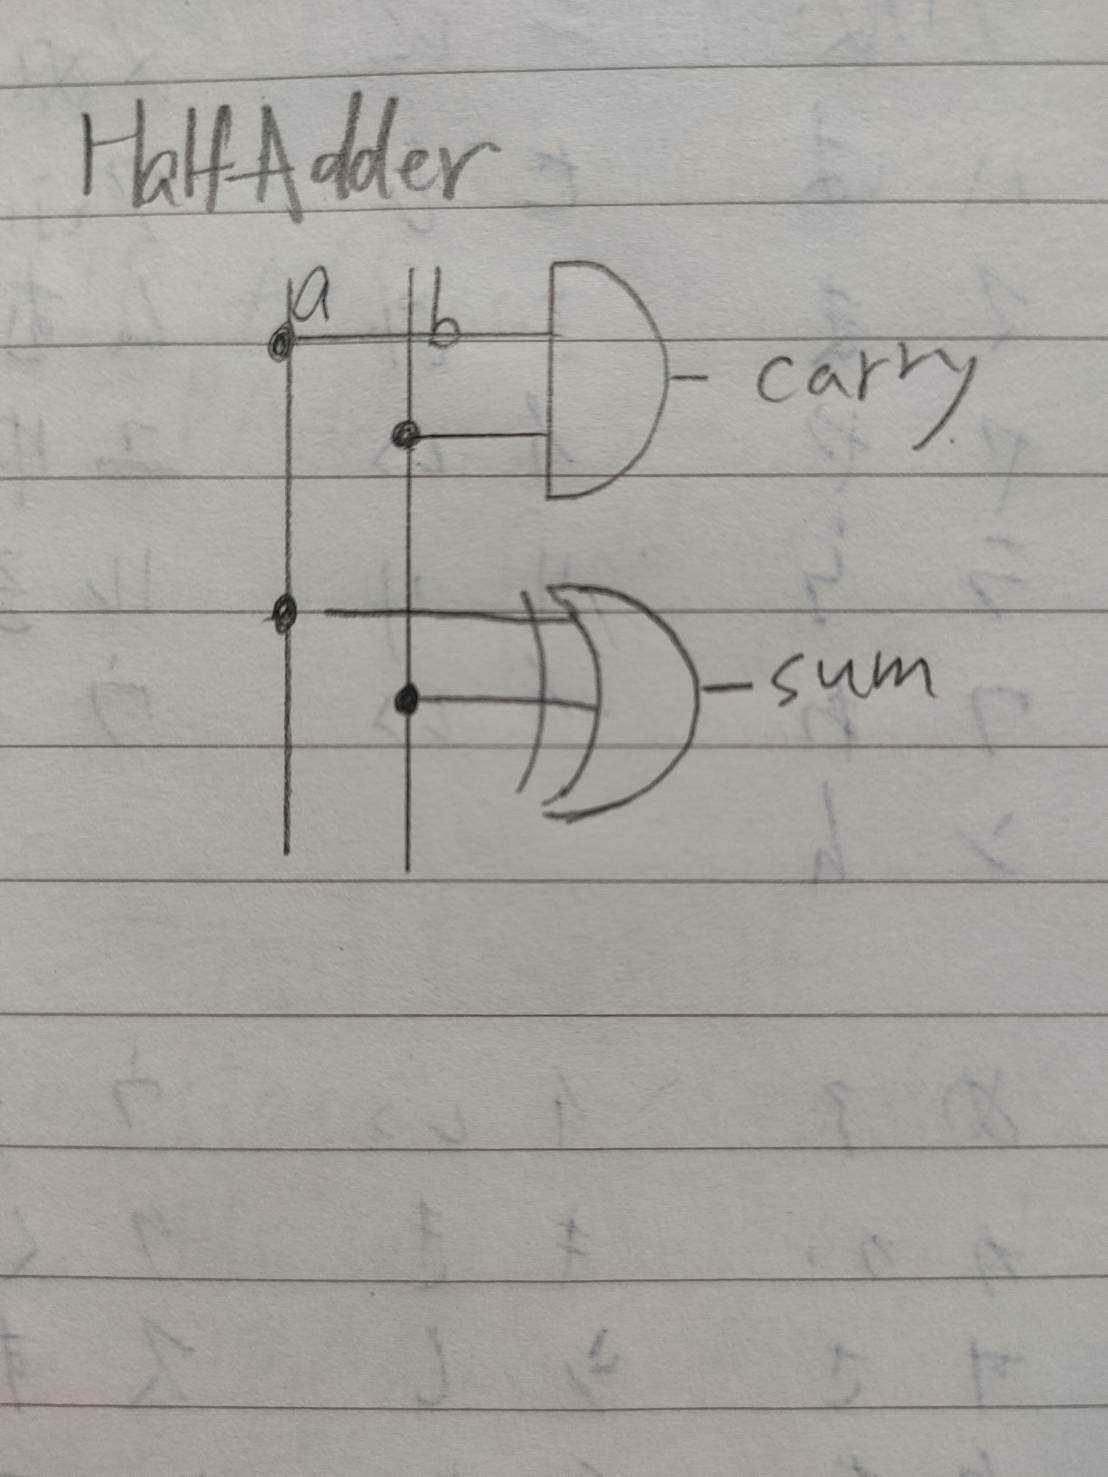 HalfAdder
a b
carry
sum